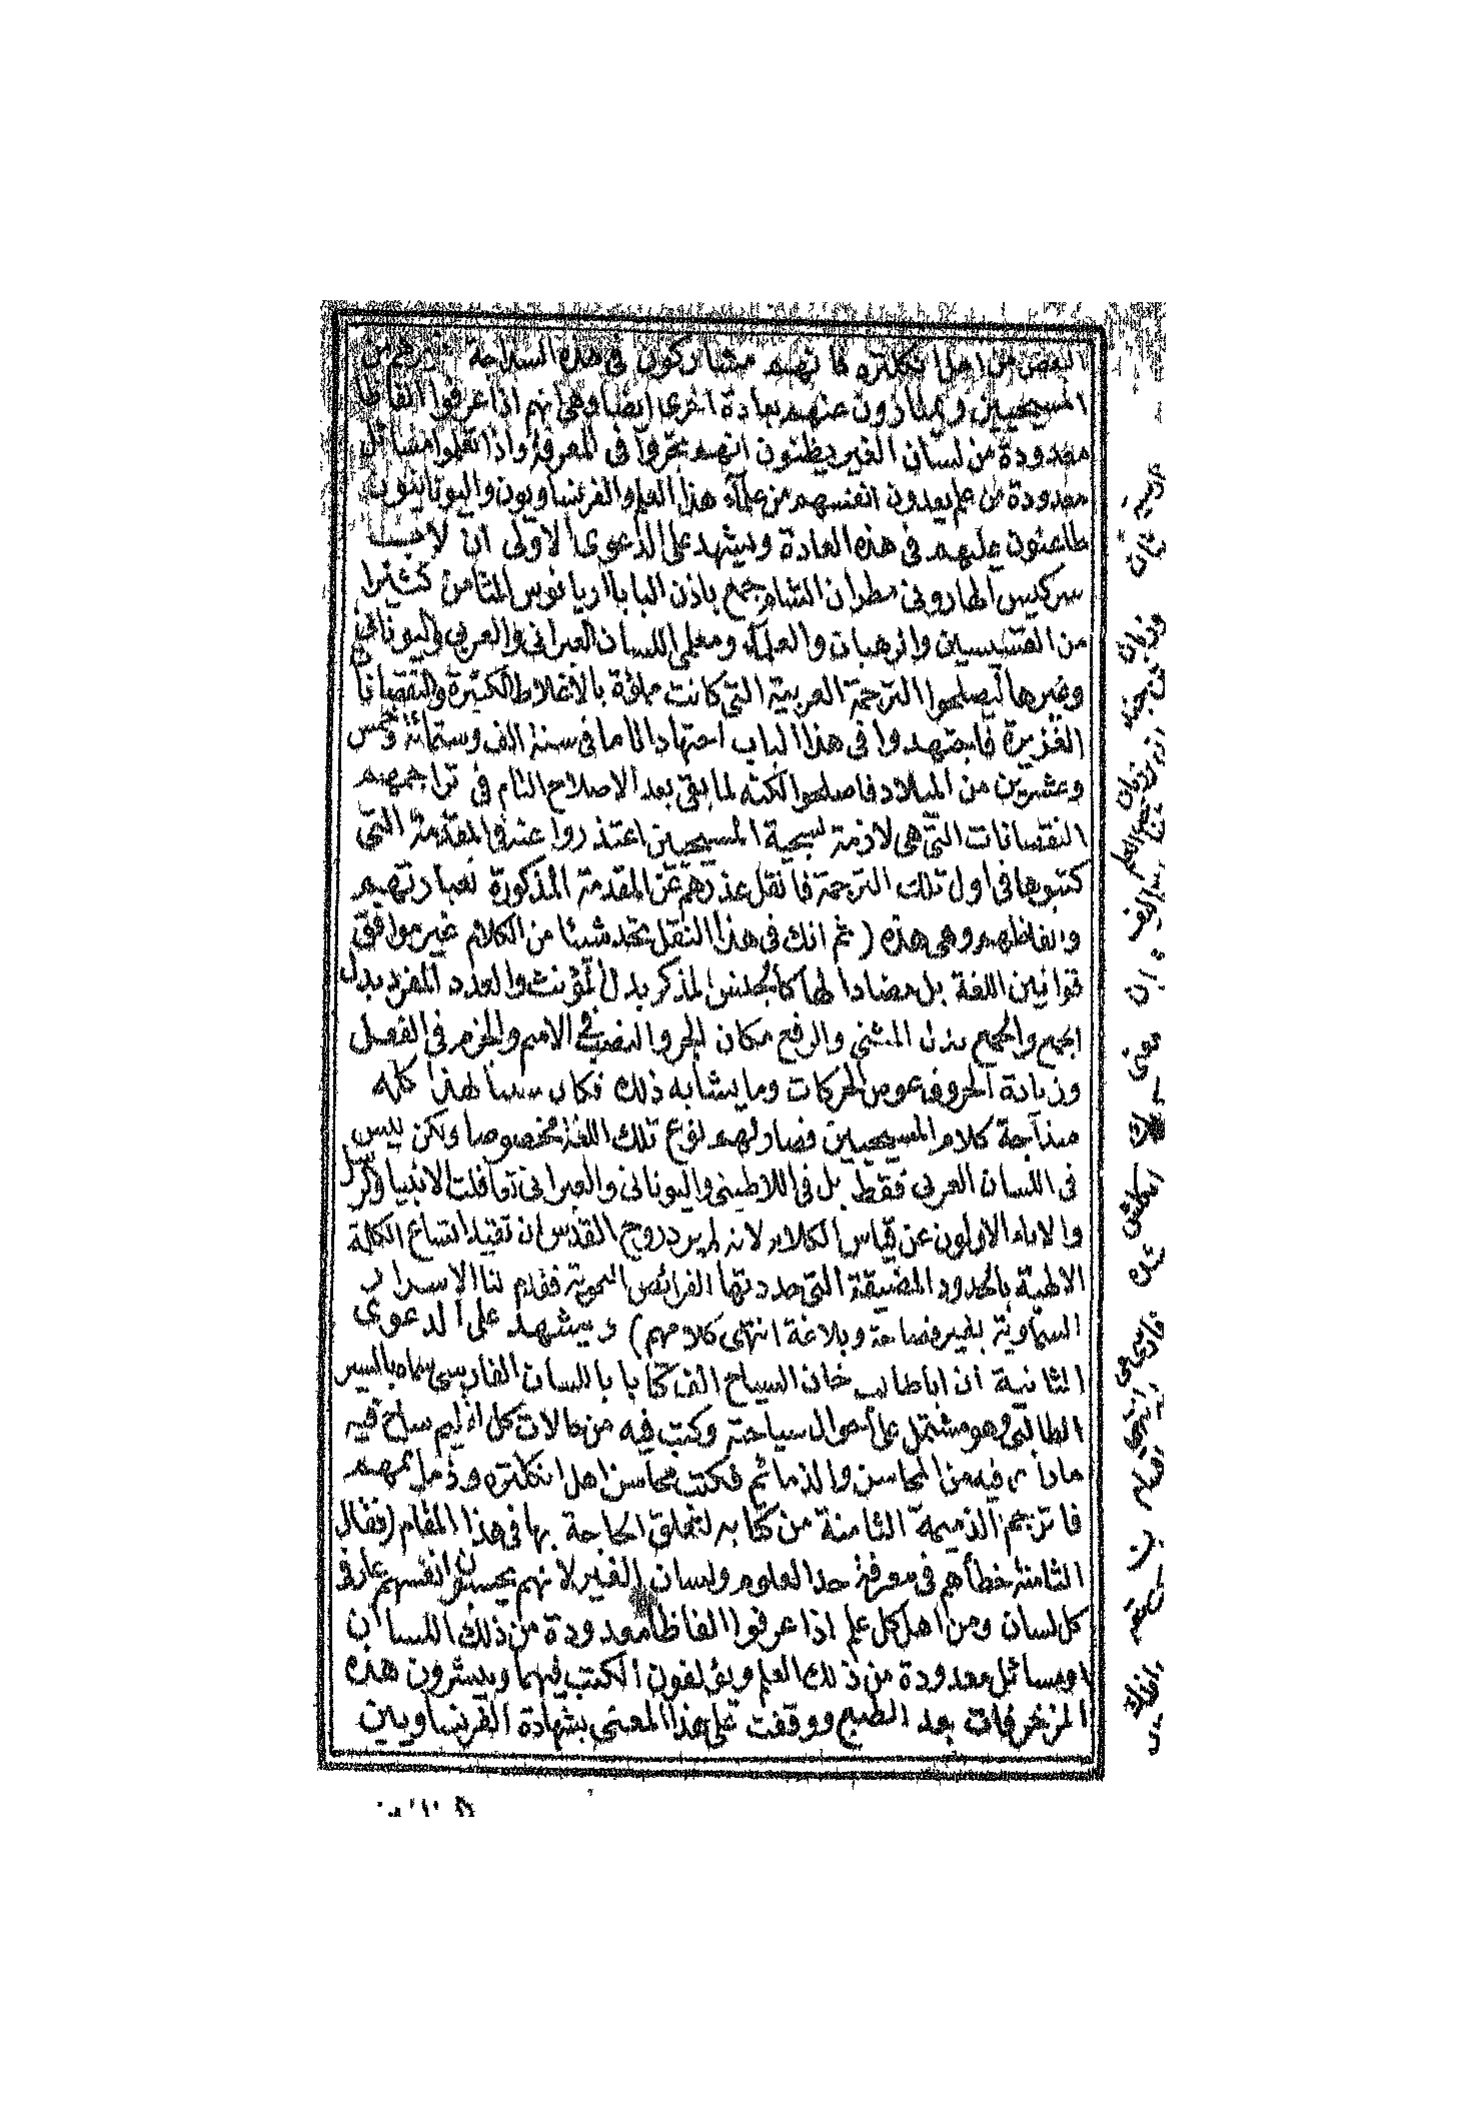 البعض من اهل انكلتره فانهم مشاركون في هذه السذاجة غيرهم من
المسيحيين ويمتازون عنهم بعادة اخرى ايضا وهي انهم اذا عرفوا الفاظا
معدودة من لسان الغير يظنون انهم تبحروا في المعرفة واذا تعلموا مسائل
معدودة من علم يعدون انفسهم من علماء هذا العلم والفرنساويون واليونانيون
طاعنون عليهم في هذه العادة ويشهد على الدعوى الاولى ان
سركيس الهاروني مطران الشام جمع باذن البابا اربانوس الثامن كثيرا
من القسيسين والرهبان والعلماء ومعلمي اللسان العبراني والعربي واليوناني
وغيرها ليصلحوا الترجمة العربية التي كانت مملوة بالاغلاط الكثيرة والنقصانات
الغزيرة فاجتهدوا في هذا الباب اجتهادا تاما في سنة الف وستمائة وخمس
وعشرين من الميلاد فاصلحوا لكنه لما بقي بعد الاصلاح التام في تراجمهم
النقصانات التي هي لازمة لسجية المسيحيين اعتذروا عنه في المقدمة التي
كتبوها في اول تلك الترجمة فانقل عذرهم عن المقدمة المذكورة بعبارتهم
والفاظهم وهي هذه (ثم انك في هذا النقل تجد شيئا من الكلام غير موافق
قوانين اللغة بل مضادا لها كالجنس المذكر بدل المؤنث والعدد المفرد بدل
الجمع والجمع بدل المثنى والرفع مكان الجر والنصب في الاسم والجزم في الفعل
وزيادة الحروف عوض الحركات وما يشابه ذلك فكان سببا لهذا كله
سذاجة كلام المسيحيين فصار لهم نوع تلك اللغة مخصوصا ولكن ليس
في اللسان العربي فقط بل في اللاطيني واليوناني والعبراني تغافلت الانبيا والرسل
والاباء الاولون عن قياس الكلام لانه لم يرد روح القدس ان تقيد اتساع الكلمة
الالهية بالحدود المضيقة التي حددتها الفرائض النحوية فقدم لنا الاسرار
السماوية بغير فصاحة وبلاغة انتهى كلامهم) ويشهد على الدعوى
الثانية ان ابا طالب خان السياح الف كتابا باللسان الفارسي سماه بالمسير
الطالبي وهو مشتمل على احوال سياحته وكتب فيه من حالات كل اقليم ساح فيه
ما رأى فيه من المحاسن والذمائم فكتب محاسن اهل انكلتره وذمائمهم
فاترجم الذميمة الثامنة من كتابه لتعلق الحاجة بها في هذا المقام (فقال
الثامنة خطأهم في معرفة حد العلوم ولسان الغير لانهم يحسبون انفسهم عارف
كل لسان ومن اهل كل علم اذا عرفوا الفاظا معدودة من ذلك اللسان
او مسائل معدودة من ذلك العلم ويؤلفون الكتب فيهما وينشرون هذه
المزخرفات بعد الطبع ووقفت على هذا المعنى بشهادة الفرنساويين